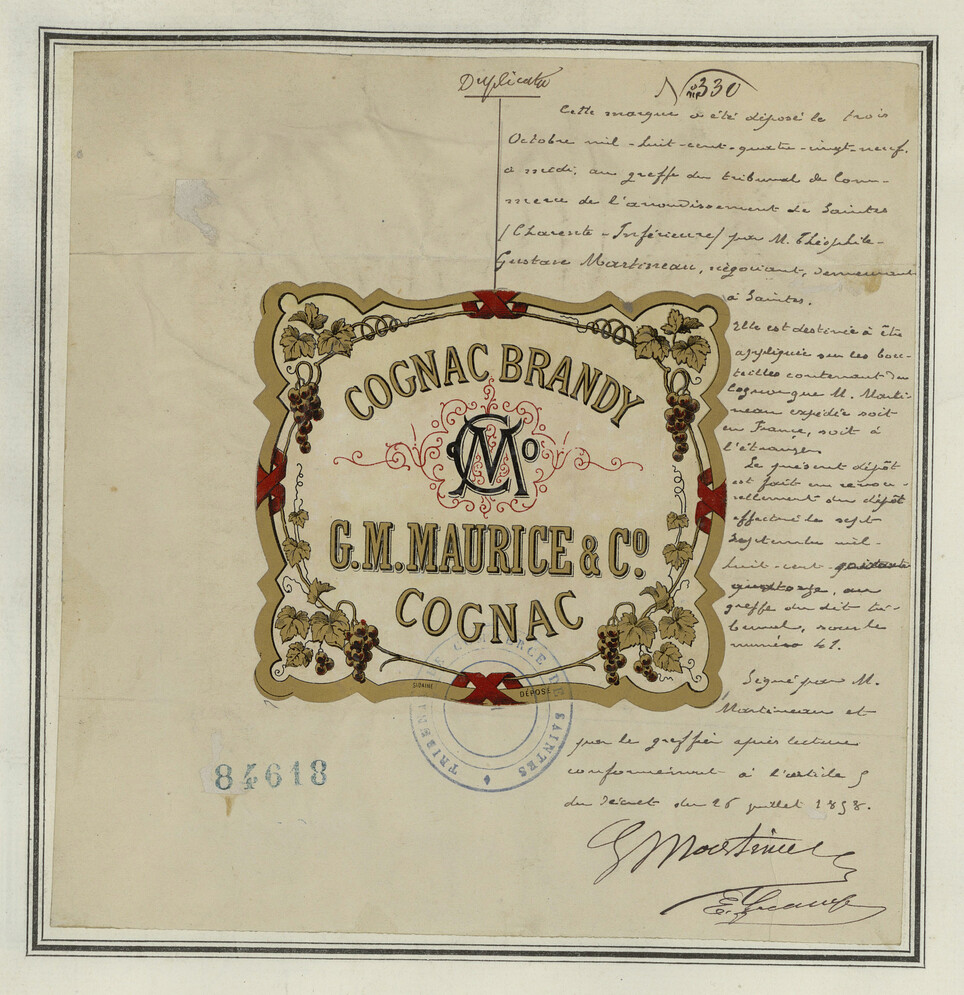 Duplicata
N° 330
Cette marque a été déposé le trois
Octobre mil-huit-cent-quatre-vingt-neuf,
à midi, au greffe du tribunal de Com-
merce de l'arrondissement de Saintes
(Charente-Inférieure) par M. Théophile-
Gustave Martineau, négociant, demeurant
à Saintes.
Elle est destinée à être
appliquée sur les bou-
teilles contenant du
Cognac que M. Marti-
neau expédie soit
en France, soit à
l'étranger.
Le présent dépôt
est fait en renou-
vellement du dépôt
effectué le sept
Septembre mil-
huit-cent-soixante
quatorze, au
greffe du dit tri-
bunal, sous le
numéro 41.
Signé par M.
Martineau et
par le greffier après lecture
conformément à l'article 5
du décret du 26 juillet 1858.
G Martineau
COGNAC BRANDY
CMo
G.M. MAURICE & Co.
COGNAC
DÉPOSÉ
TRIBUNAL DE COMMERCE DE SAINTES
84618